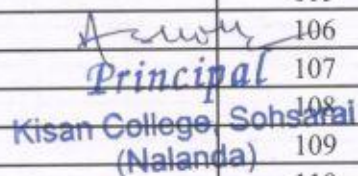 106
Principal 107
108
Kisan College, Sohsarai
(Nalanda) 109